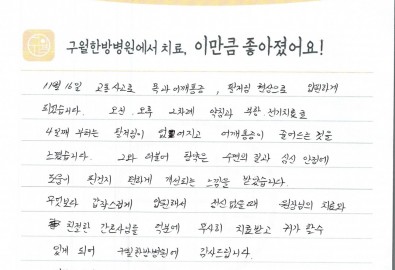 구월한방병원에서 치료, 이만큼 좋아졌어요!
11월 16일 교통사고로 목과 어깨통증, 팔저림 현상으로 입원하게
되었습니다. 오전, 오후 2차례 약침과 부항 전기치료로
4일째 부터는 팔저림이 없어지고 어깨통증이 줄어드는 것을
느꼈습니다. 그와 더불어 한약은 수면의 질과 심신 안정에
도움이 된건지 편하게 개선되는 느낌을 받았습니다.
무엇보다 갑작스럽게 입원해서 정신없을때 원장님의 치료와
친절한 간호사님들 덕분에 무사히 치료받고 귀가 할수
있게 되어 구월한방병원에 감사드립니다.